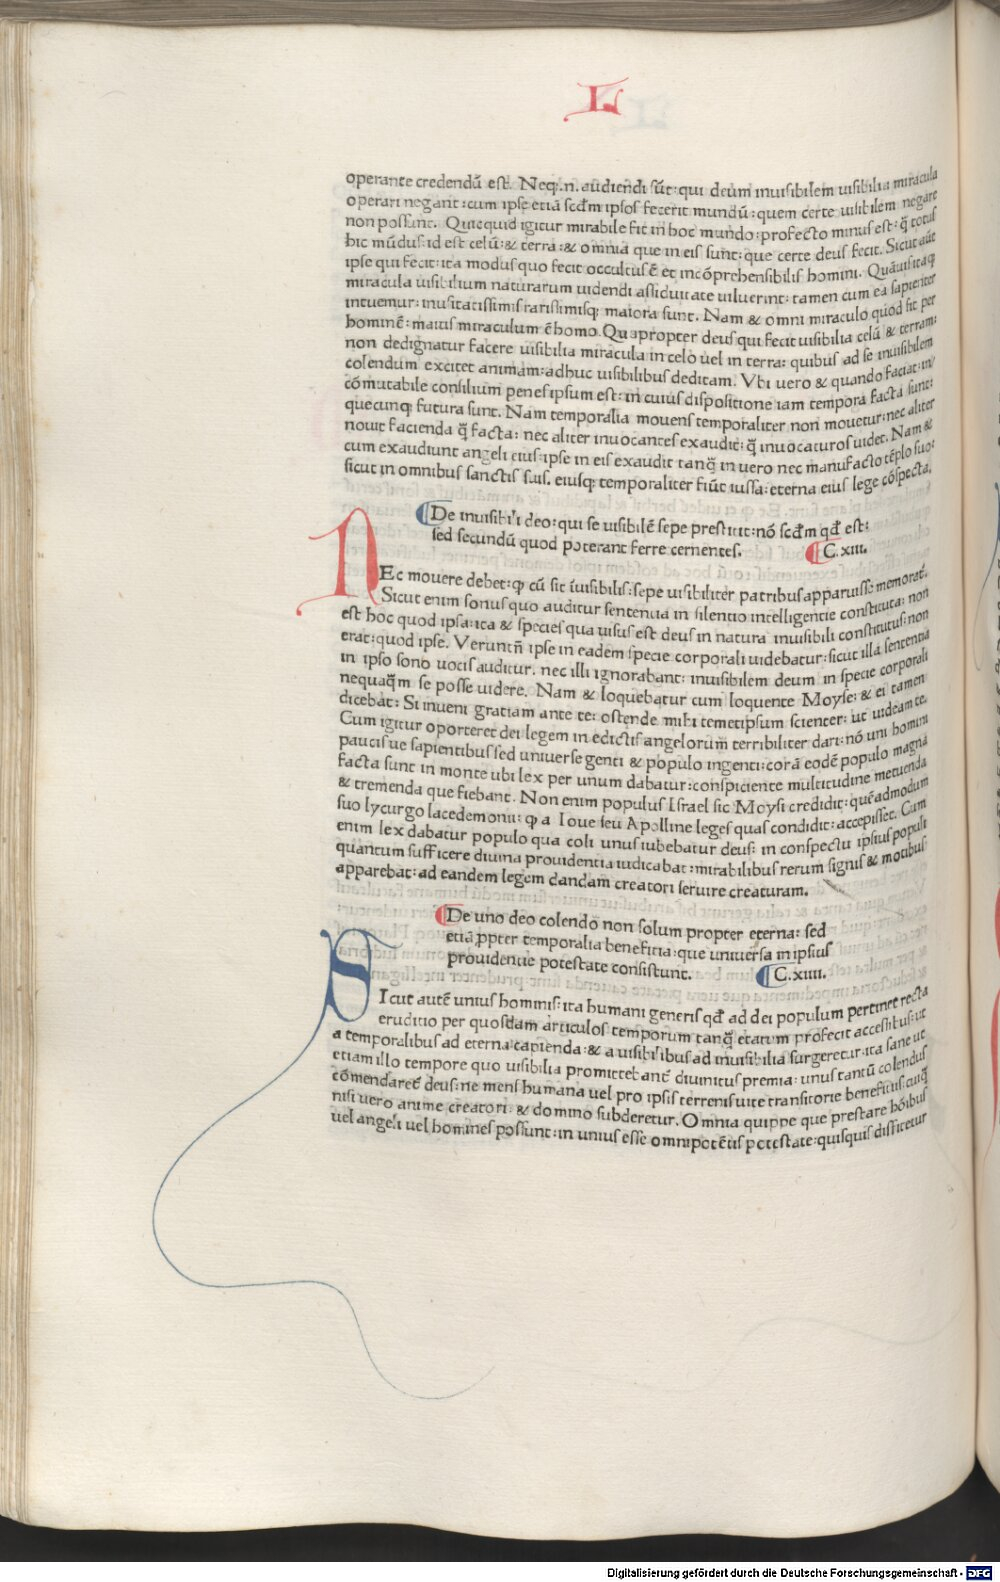 L
operante credendū est. Neq;.n. audiendi sūt: qui deum inuisibilem uisibilia miracula
operari negant: cum ipse etiā scđm ipsos fecerit mundū: quem certe uisibilem negare
non possunt. Quicquid igitur mirabile fit in hoc mundo: profecto minus est: q̃ totus
hic mūdus: id est celū: & terra: & omnia que in eis sunt: que certe deus fecit. Sicut aūt
ipse qui fecit: ita modus quo fecit occultus ē et incōprehensibilis homini. Quāuis itaq;
miracula uisibilium naturarum uidendi assiduitate uiluerint: tamen cum ea sapienter
intuemur: inusitatissimis rarissimisq; maiora sunt. Nam & omni miraculo quod fit per
hominē: maius miraculum ē homo. Quapropter deus qui fecit uisibilia celū & terram:
non dedignatur facere uisibilia miracula in celo uel in terra: quibus ad se inuisibilem
colendum excitet animam: adhuc uisibilibus deditam. Vbi uero & quando faciat: in/
cōmutabile consilium penes ipsum est: in cuius dispositione iam tempora facta sunt:
quecunq; futura sunt. Nam temporalia mouens temporaliter non mouetur: nec aliter
nouit facienda q̃ facta: nec aliter inuocantes exaudit: q̃ inuocaturos uidet. Nam &
cum exaudiunt angeli eius: ipse in eis exaudit tanq̃ in uero nec manufacto tēplo suo:
sicut in omnibus sanctis suis. eiusq; temporaliter fiūt iussa: eterna eius lege cōspecta.
De inuisibili deo: qui se uisibilē sepe prestitit: nō scđm qđ est:
sed secundū quod poterant ferre cernentes. C. xiii.
NEc mouere debet: ꝙ cū sit īuisibilis: sepe uisibiliter patribus apparuisse memorat̄.
Sicut enim sonus quo auditur sententia in silentio intelligentie constituta: non
est hoc quod ipsa: ita & species qua uisus est deus in natura inuisibili constitutus: non
erat: quod ipse. Veruntñ ipse in eadem specie corporali uidebatur: sicut illa sententia
in ipso sono uocis auditur. nec illi ignorabant: inuisibilem deum in specie corporali
nequaq̃m se posse uidere. Nam & loquebatur cum loquente Moyse: & ei tamen
dicebat: Si inueni gratiam ante te: ostende mihi temetipsum scienter: ut uideam te.
Cum igitur oporteret dei legem in edictis angelorum terribiliter dari: nō uni homini
paucis ue sapientibus sed uniuerse genti & populo ingenti: corā eodē populo magna
facta sunt in monte ubi lex per unum dabatur: conspiciente multitudine metuenda
& tremenda que fiebant. Non enim populus Israel sic Moysi credidit: quēadmodum
suo lycurgo lacedemonii: ꝙ a Ioue seu Apolline leges quas condidit: accepisset. Cum
enim lex dabatur populo qua coli unus iubebatur deus: in conspectu ipsius populi
quantum sufficere diuina prouidentia iudicabat: mirabilibus rerum signis & motibus
apparebat: ad eandem legem dandam creatori seruire creaturam.
De uno deo colendo non solum propter eterna: sed
etiā ꝓpter temporalia beneficia: que uniuersa in ipsius
prouidentie potestate consistunt. C. xiiii.
SIcut autē unius hominis: ita humani generis qđ ad dei populum pertinet recta
eruditio per quosdam articulos temporum tanq̃ etatum profecit accessibus: ut
a temporalibus ad eterna capienda: & a uisibilibus ad inuisibilia surgeretur. ita sane ut
etiam illo tempore quo uisibilia promittebant̄ diuinitus premia: unus tantū colendus
cōmendaret̄ deus: ne mens humana uel pro ipsis terrenis uite transitorie beneficiis: cuiq̃
nisi uero anime creatori. & domino subderetur. Omnia quippe que prestare hōibus
uel angeli uel homines possunt: in unius esse omnipotētis potestate: quisquis diffitetur
Digitalisierung gefördert durch die Deutsche Forschungsgemeinschaft - DFG